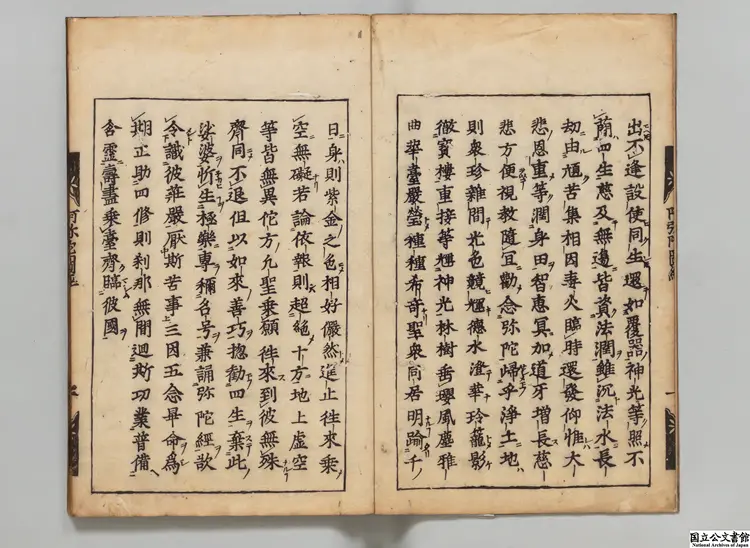 出不逢設使同生還如覆器神光等照不
蕳四生慈及無邊皆資法潤雖沉法水長
劫由頑苦集相因毒火臨時還發仰惟大
悲恩重等潤身田智惠冥加道牙増長慈
悲方便視教隨宜勸念弥陀歸乎淨土地
則衆珍雜間光色競輝德水澄華玲瓏影
徹寳樓重接等輝神光林樹垂瓔風塵雅
曲華臺嚴瑩種種希奇聖衆同居明踰千
日身則紫金之色相好儼然進止徃來乗
空無礙若論依報則超絶十方地上虚空
等皆無異佗方凡聖乗願徃來到彼無殊
齊同不退但以如來善巧揔勸四生棄此
娑婆忻生極樂專稱名号兼誦弥陀經欲
令識彼莊嚴厭斯苦事三因五念畢命爲
期正助四修則刹那無間迴斯功業普備
含靈壽盡乗臺齊臨彼國
国立公文書館
National Archives of Japan